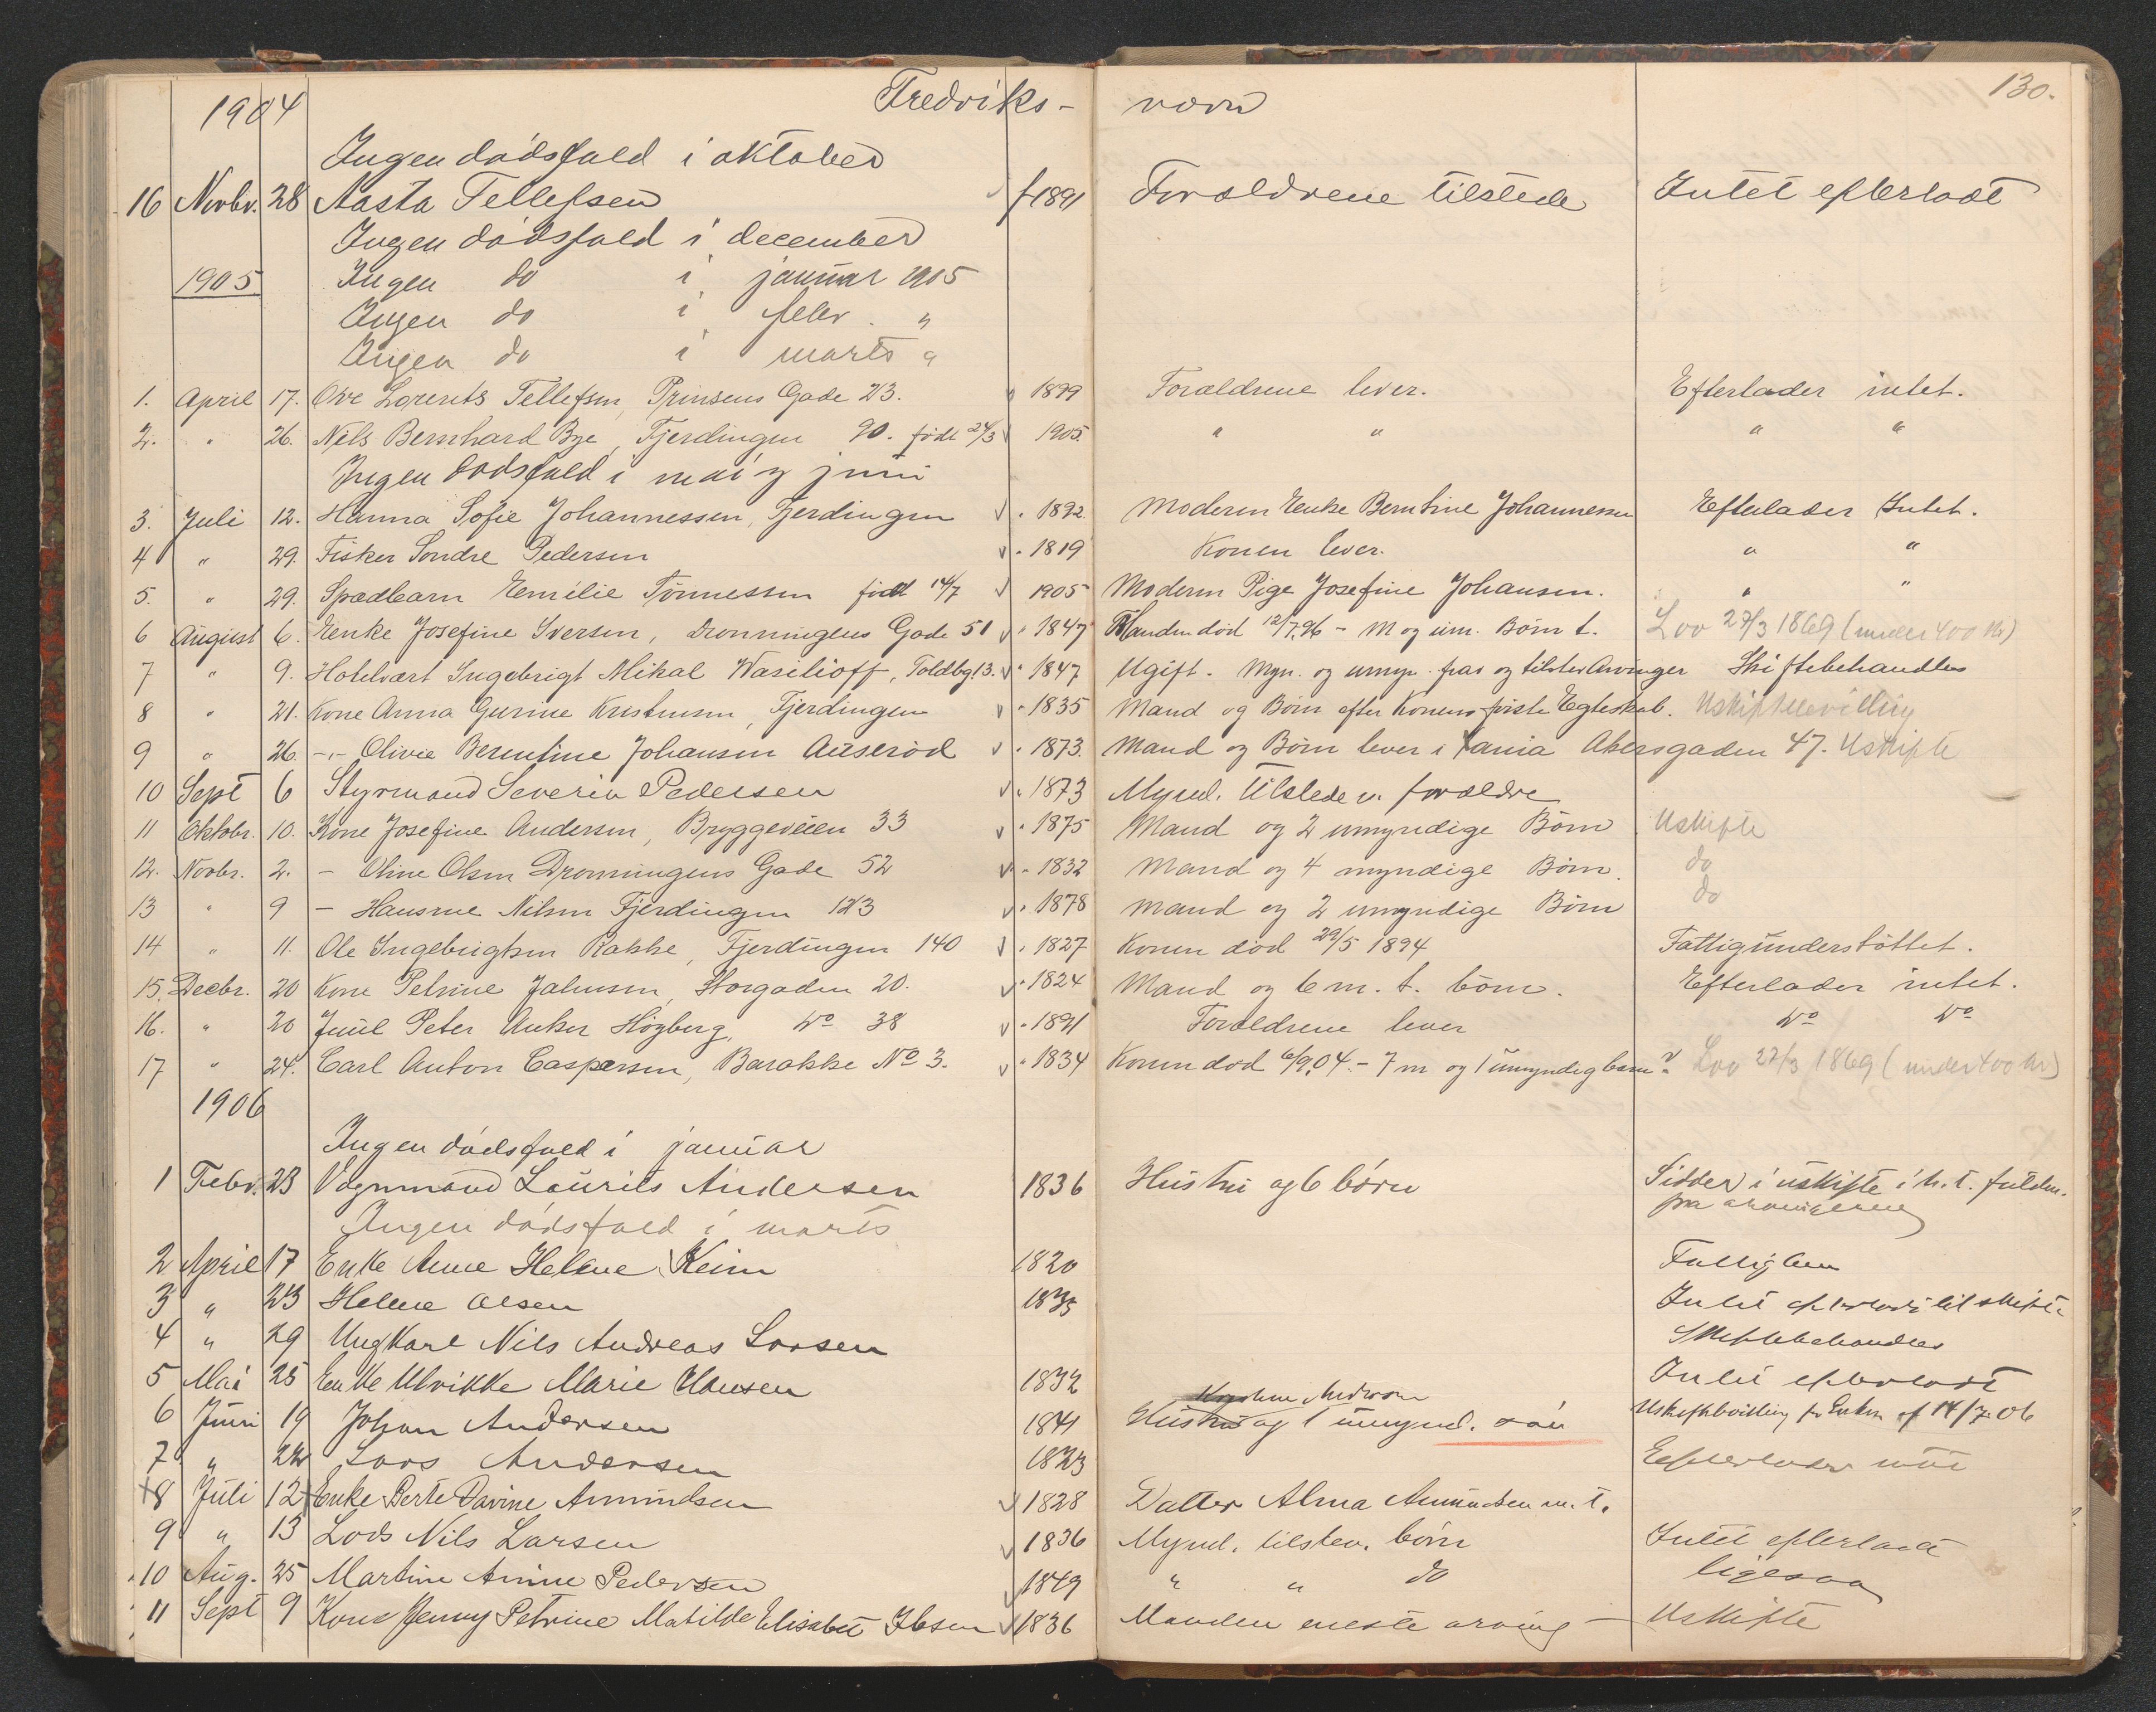 1904 Fredriks- værn 130.
Ingen dödsfald i oktober
16 Novbr. 28 Aasta Tellefsen f 1891 Forældrene tilstede Intet efterladt
Ingen dödsfald i december
1905 Ingen do i januar 1905
Ingen do i febr. "
Ingen do i marts "
1. April 17. Ove Lorents Tellefsen, Prinsens Gade 23. " 1899 Forældrene lever. Efterlader intet.
2. " 26. Nils Bernhard Bye, Fjerdingen 90. født 24/3 1905. " " " "
Ingen dödsfald i mai og juni
3. Juli 12. Hanna Sofie Johannessen, Fjerdingen " 1892 Moderen Enke Berntine Johannessen Efterlader Intet.
4 " 29. Fisker Sondre Pedersen " 1819 Konen lever. " "
5. " 29. Spædbarn Emilie Tønnessen født 14/7 1905 Moderen Pige Josefine Johansen. " "
6 August 6. Enke Josefine Iversen, Dronningens Gade 51 " 1847 Manden død 12/7.96 - M og um. Börn t. Lov 27/3 1869 (under 400 Kr)
7 " 9. Hotelvært Ingebrigt Mikal Wasilioff, Toldbg. 13. " 1847 Ugift. Myn. og umyn. frav og tilstev Arvinger Skiftebehandles
8 " 21. Kone Anna Gurine Kristensen, Fjerdingen " 1835 Mand og Börn efter Konens første Egteskab. Uskiftebevilling
9 " 26. -"- Olivie Berntine Johansen Auserød " 1873. Mand og Börn lever i Xania Akersgaden 47. Uskifte
10 Sept 6 Styrmand Severin Pedersen " 1873 Mynd. tilstedev. forældre
11 Oktobr. 10. Kone Josefine Andersen, Bryggeveien 33 " 1875 Mand og 2 umyndige Börn Uskifte
12. Novbr. 2. - Oline Olsen Dronningens Gade 52 " 1832 Mand og 4 myndige Börn. do
13 " 9 - Hansine Nilsen Fjerdingen 123 " 1878 Mand og 2 umyndige Börn do
14 " 11. Ole Ingebrigtsen Rakke, Fjerdingen 140 " 1827 Konen död 29/5 1894 Fattigunderstöttet.
15. Decbr. 20 Kone Petrine Jahnsen, Storgaden 20. " 1824 Mand og 6 m. t. börn. Efterlader intet.
16. " 20 Juul Peter Anker Högberg, do 38 " 1891 Forældrene lever do do
17 " 24. Carl Anton Caspersen, Barakke No 3. " 1834 Konen död 6/9.04. - 7 m og 1 umyndig barn? Lov 27/3 1869 (under 400 kr)
1906
Ingen dödsfald i januar
1 Febr. 23 Vognmand Laurits Andersen 1836 Hustru og 6 börn Sidder i uskifte i h. t. fuldm.
fra arvingerne
Ingen dödsfald i marts
2 April 17 Enke Anne Helene Keim 1820 Fattiglem
3 " 23 Helene Olsen 1835 Intet efterladt til skifte
4 " 29 Ungkarl Nils Andreas Larsen Skiftebehandles
5 Mai 25 Enke Ulrikke Marie Hansen 1832 Intet efterladt
6 Juni 19 Johan Andersen 1841 Hustru og 1 umynd. sön Uskiftebevilling for Enken af 14/7 06
7 " 22 Lars Andersen 1823 Efterlader intet
8 Juli 12 Enke Berte Davine Amundsen 1828 Datter Alma Amundsen m. t.
9 " 13 Lods Nils Larsen 1836 Mynd. tilstev. börn Intet efterladt
10 Aug. 25 Martine Amine Pedersen 1849 " " do ligesaa
11 Sept 9 Kone Jenny Petrine Matilde Elisabet Ibsen 1836 Manden eneste arving - Uskifte